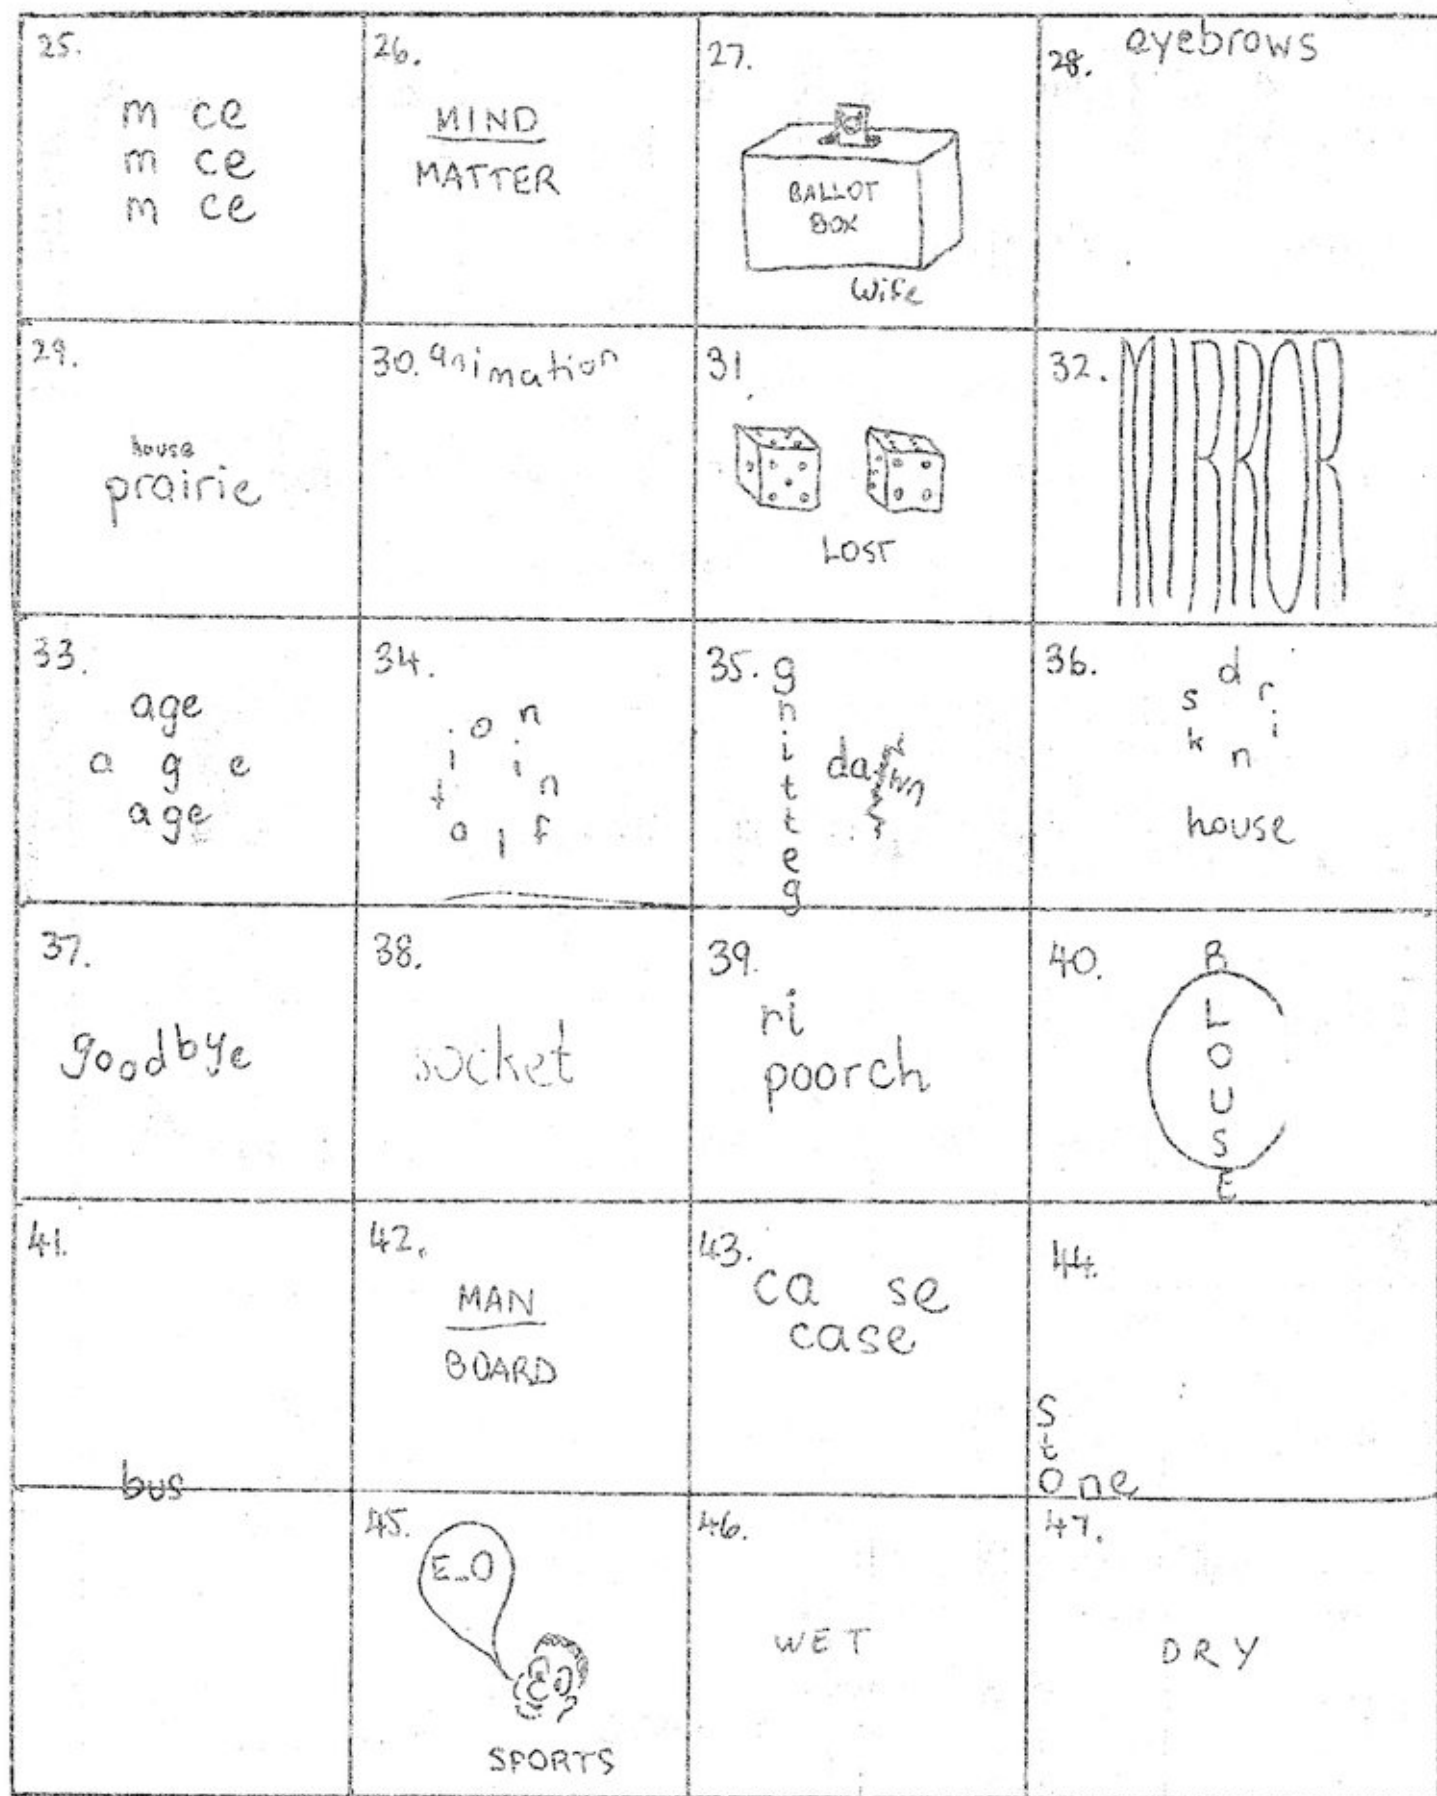 25.
m ce
m ce
m ce
26.
MIND
MATTER
27.
BALLOT
BOX
Wife
28.
eyebrows
29.
house
prairie
30.
animation
31.
LOST
32.
MIRROR
33.
age
a g e
age
34.
inflation
35.
gnitteg
dawn
36.
drinks
house
37.
goodbye
38.
socket
39.
ri
poorch
40.
BLOUSE
41.
bus
42.
MAN
BOARD
43.
ca se
case
44.
stone
45.
E_O
SPORTS
46.
WET
47.
DRY